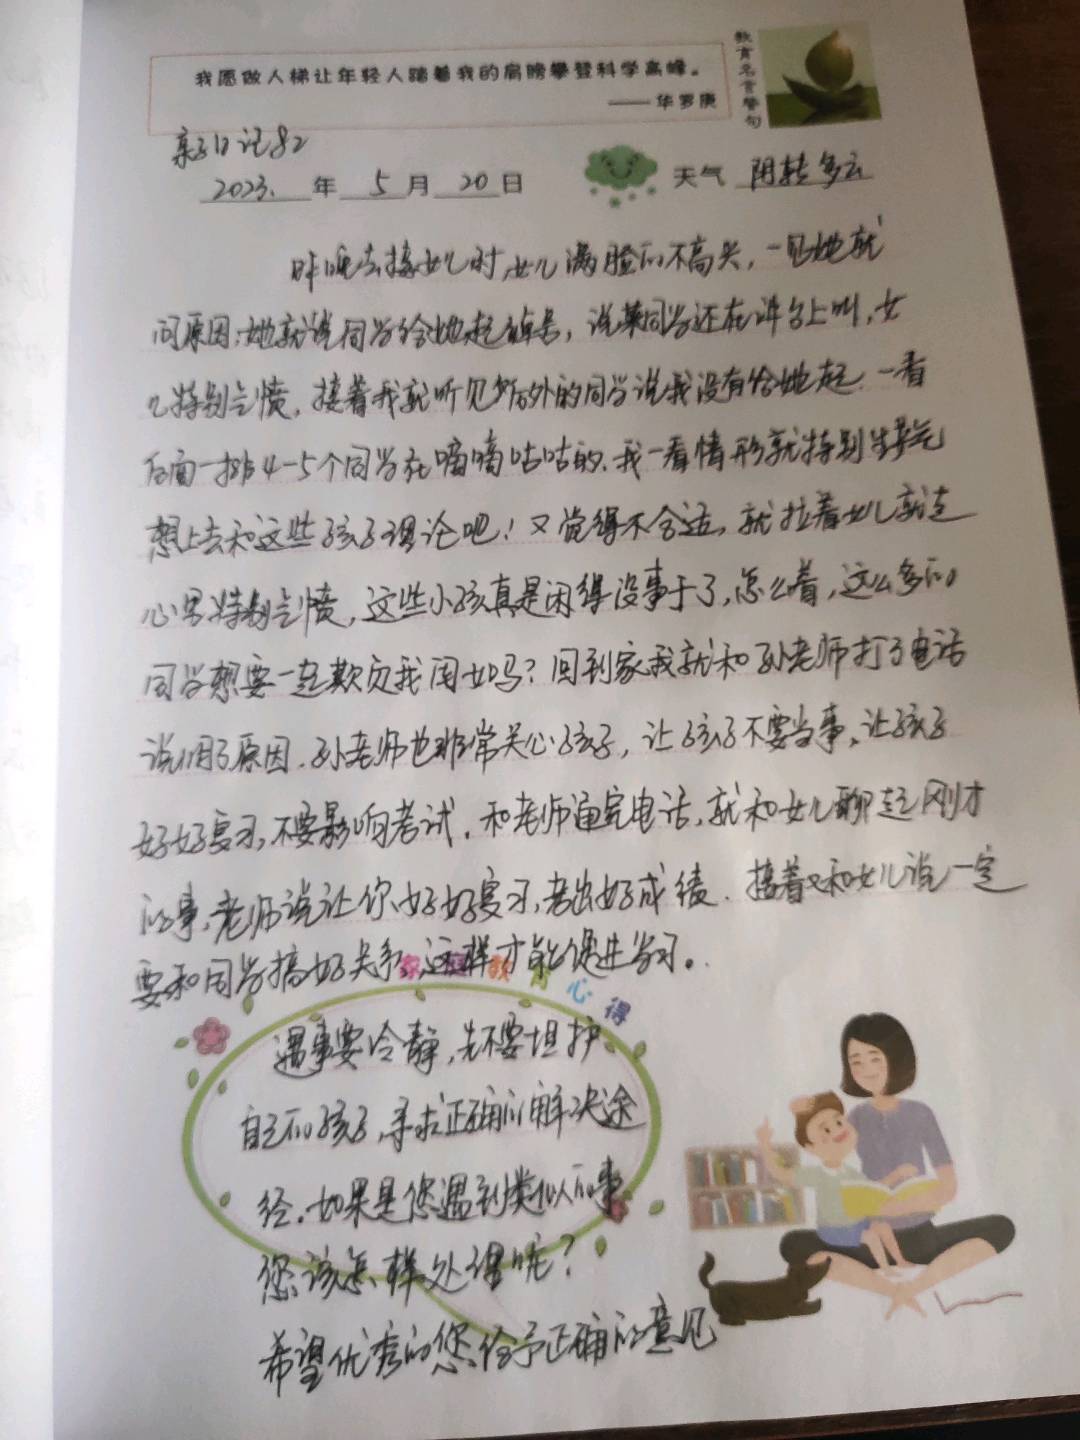 我愿做人梯让年轻人踏着我的肩膀攀登科学高峰。
——华罗庚
教育名言警句
亲子日记82
2023.年5月20日
天气 阴转多云
昨晚去接女儿时,女儿满脸的不高兴,一见她就
问原因,她就说同学给她起绰号,说某同学还在讲台上叫,女
儿特别气愤,接着我就听见外的同学说我没有给她起.一看
后面一排4-5个同学在嘀嘀咕咕的.我一看情形就特别生气
想上去和这些孩子理论吧!又觉得不合适,就拉着女儿就走
心里特别气愤,这些小孩真是闲得没事于了,怎么着,这么多的
同学想要一起欺负我闺女吗?回到家我就和孙老师打了电话
说明了原因.孙老师也非常关心孩子,让孩子不要当事,让孩子
好好复习,不要影响考试.和老师通完电话,就和女儿聊起刚才
的事,老师说让你好好复习,考出好成绩.接着又和女儿说一定
要和同学搞好关系,这样才能促进学习。
家庭教育心得
遇事要冷静,先不要坦护
自己的孩子,寻求正确的解决途
经.如果是您遇到类似的事
您该怎样处理呢?
希望优秀的您给予正确的意见